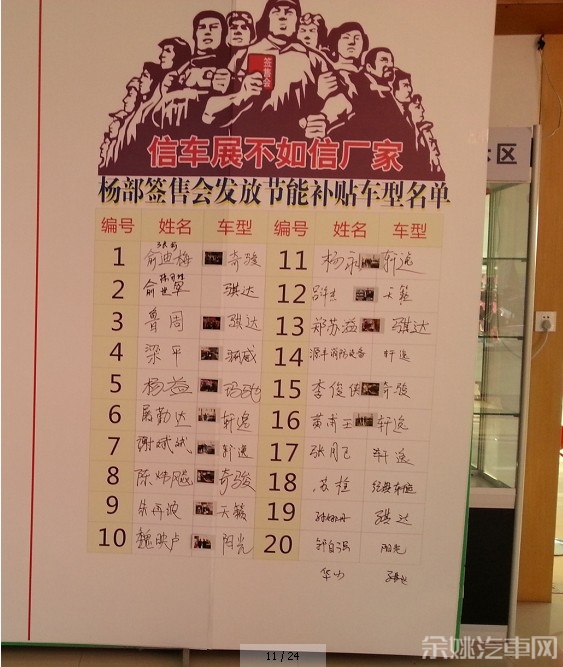 签售会
信车展不如信厂家
杨部签售会发放节能补贴车型名单
编号 姓名 车型 编号 姓名 车型
1 俞迪梅 奇骏
2 俞世军 骐达
3 鲁周 骐达
4 梁平 骊威
5 杨益 玛驰
6 周勤达 轩逸
7 谢斌斌 轩逸
8 陈炜飚 奇骏
9 朱再波 天籁
10 魏映卢 阳光
11 杨 轩逸
12 天籁
13 郑苏溢 骐达
14 源丰消防设备 轩逸
15 李俊 奇骏
16 黄甫士 轩逸
17 张月己 轩逸
18 苏桂 经典轩逸
19 骐达
20 邹自强 阳光
华山 骐达
区
11 / 24
余姚汽车网